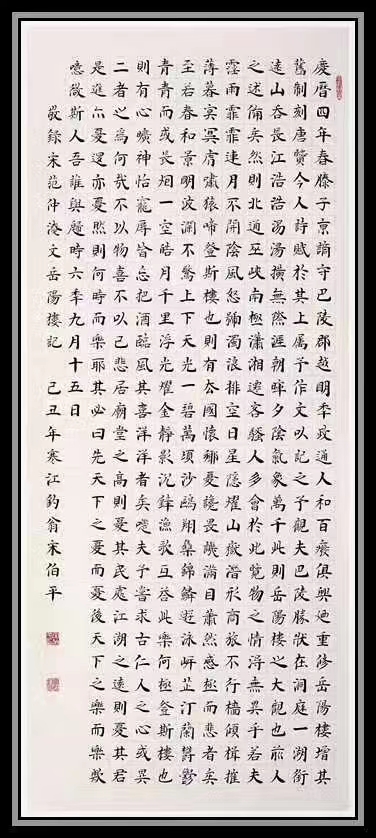 慶曆四年春滕子京謫守巴陵郡越明年政通人和百廢俱興廼重修岳陽樓增其
舊制刻唐賢今人詩賦於其上屬予作文以記之予觀夫巴陵勝狀在洞庭一湖銜
遠山吞長江浩浩湯湯橫無際涯朝暉夕陰氣象萬千此則岳陽樓之大觀也前人
之述備矣然則北通巫峽南極瀟湘遷客騷人多會於此覽物之情得無異乎若夫
霪雨霏霏連月不開陰風怒號濁浪排空日星隱耀山嶽潛形商旅不行檣傾楫摧
薄暮冥冥虎嘯猿啼登斯樓也則有去國懷鄉憂讒畏譏滿目蕭然感極而悲者矣
至若春和景明波瀾不驚上下天光一碧萬頃沙鷗翔集錦鱗游泳岸芷汀蘭鬱鬱
青青而或長烟一空皓月千里浮光耀金靜影沉璧漁歌互答此樂何極登斯樓也
則有心曠神怡寵辱皆忘把酒臨風其喜洋洋者矣嗟夫予嘗求古仁人之心或異
二者之為何哉不以物喜不以己悲居廟堂之高則憂其民處江湖之遠則憂其君
是進亦憂退亦憂然則何時而樂耶其必曰先天下之憂而憂後天下之樂而樂歟
噫微斯人吾誰與歸時六年九月十五日
敬錄宋范仲淹文岳陽樓記 己丑年寒江釣翁宋伯平